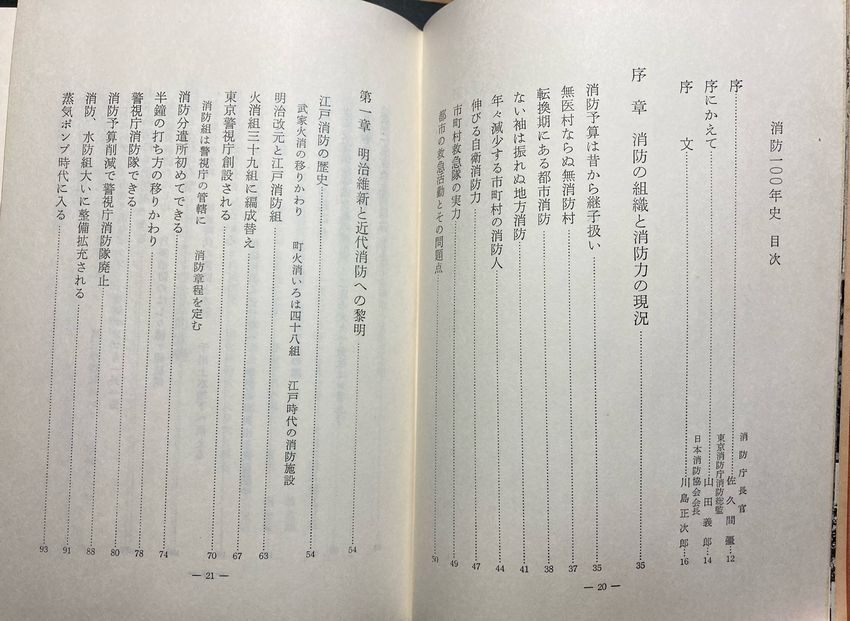 消防一〇〇年史 目次
序……消防庁長官 佐久間 彊…12
序にかえて……東京消防庁消防総監 山田義郎…14
序文……日本消防協会会長 川島正次郎…16
序章 消防の組織と消防力の現況……35
消防予算は昔から継子扱い……35
無医村ならぬ無消防村……37
転換期にある都市消防……38
ない袖は振れぬ地方消防……41
年々減少する市町村の消防人……44
伸びる自衛消防力……47
市町村救急隊の実力……49
都市の救急活動とその問題点……50
— 20 —
第一章 明治維新と近代消防への黎明……54
江戸消防の歴史……54
武家火消の移りかわり 町火消いろは四十八組 江戸時代の消防施設
明治改元と江戸消防組……63
火消組三十九組に編成替え……67
東京警視庁創設される……70
消防組は警視庁の管轄に 消防章程を定む
消防分遣所初めてできる……74
半鐘の打ち方の移りかわり……78
警視庁消防隊できる……80
消防予算削減で警視庁消防隊廃止……88
消防、水防組大いに整備拡充される……91
蒸気ポンプ時代に入る……93
— 21 —